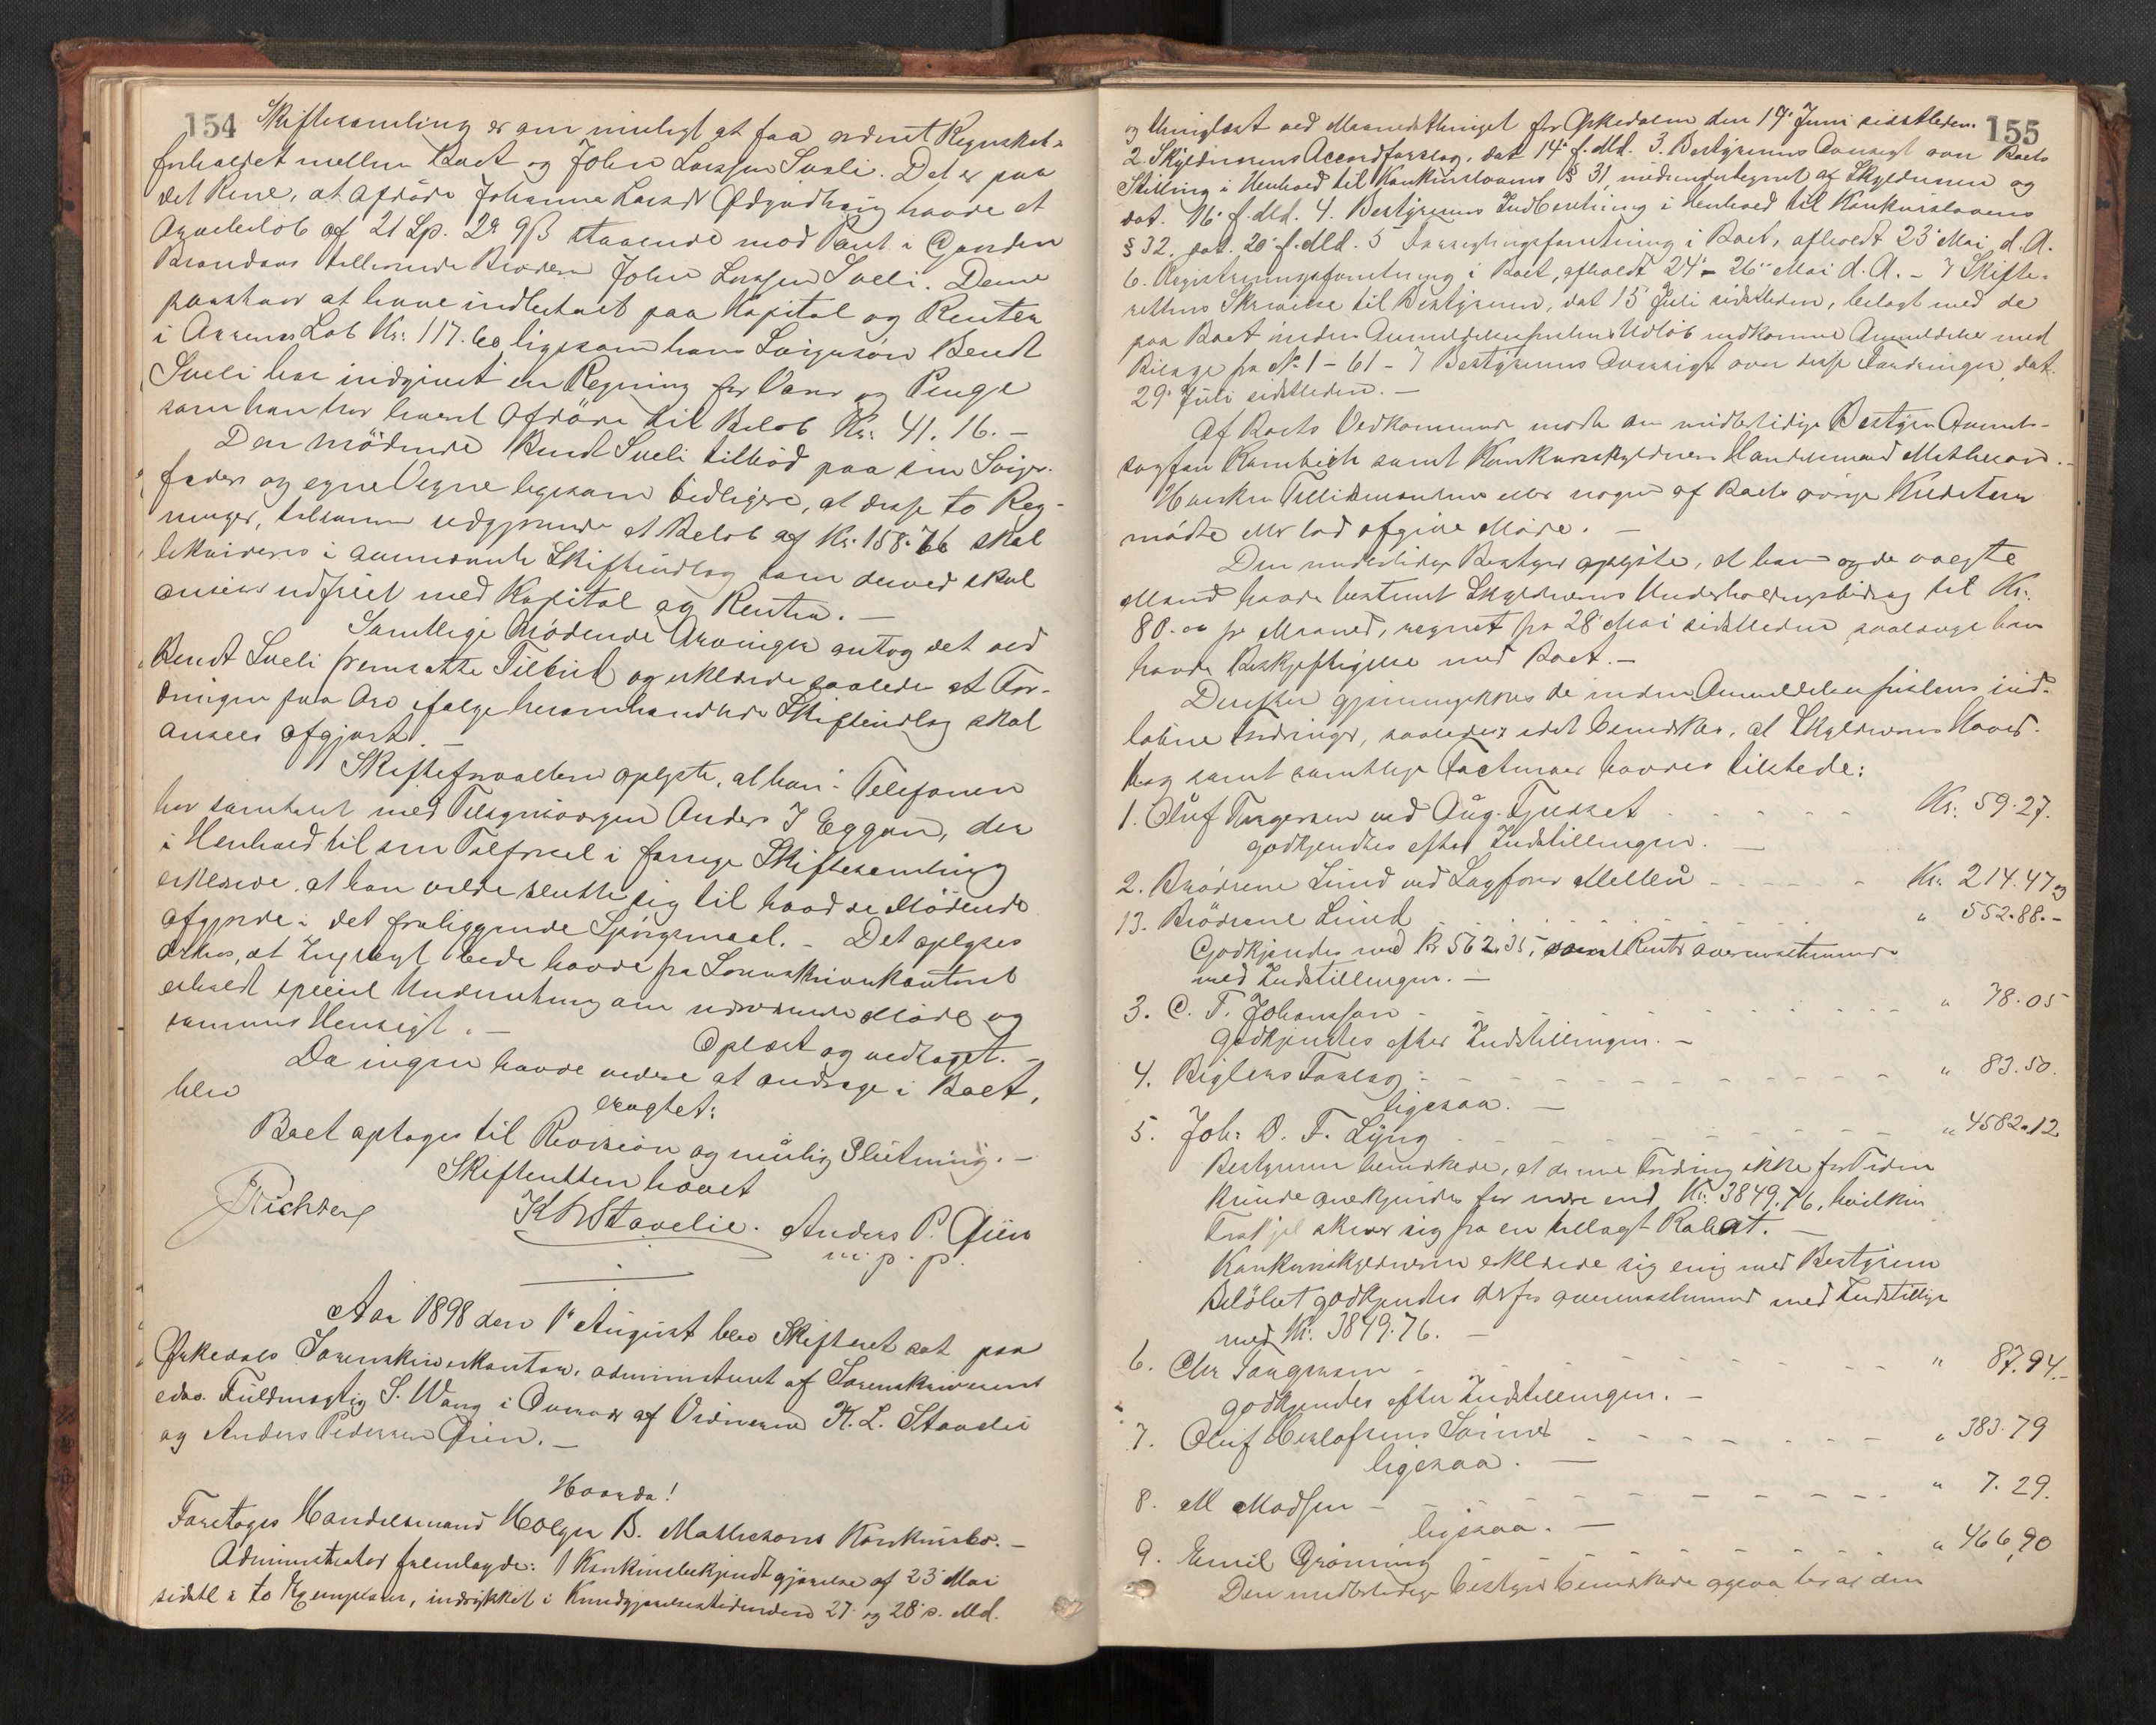 154
Skiftesamling er om muligt at faa ordnet Regnskabs-
forholdet mellem Boet og John Larssen Sueli. Det er paa
det Rene, at afdøde Johanna Larsdr havde et
Arvebeløb af 21 Sp. 2 9 ß staaende mod Pant i Gaarden
tilhørende Broderen John Larssen Sueli. Denne
paastaar at have indbetalt paa Kapital og Renter
i Aarenes Løb Kr: 117.60 ligesom hans Svigersøn Bendt
Sueli har indgivet en Regning for Varer og Penge
som han har laant Afdøde til Beløb Kr: 41.16.-
Den mødende Bendt Sueli tilbød paa sin Sviger-
faders og egne Vegne ligesom tidligere, at disse to Reg-
ninger, tilsammen udgjørende et Beløb af Kr. 158.76 skal
likvideres i Skifteudlæg som derved skal
ansees indfriet med Kapital og Renter. -
Samtlige Mødende Arvinger antog det ved
Bendt Sueli fremsatte Tilbud og erklærede saaledes at For-
dringen paa Arv ifølge Skifteudlæg skal
ansees afgjort. -
Skifteforvalteren oplyste, at han i Telefonen
har samtalet med Anders J Eggen, der
i Henhold til sin i forrige Skiftesamling
erklærede, at han vilde slutte sig til hvad de Mødende
afgjorde i det foreliggende Spørgsmaal. - Det oplyses
derhos, at havde fra Sorenskriverkontoret
erholdt speciel Underretning om nærværende Møde og
sammes Hensigt. -
Oplæst og vedtaget. -
Da ingen havde videre at andrage i Boet,
blev
eragtet:
Boet optages til Revision og mulig Slutning. -
Skifteretten hævet
Richter K L Stavelie. Anders P. Øien
m. p. p.
Aar 1898 den 1ste August blev Skifteret sat paa
Orkedals Sorenskriverkontor, administreret af Sorenskriverens
edsv. Fuldmægtig S. Wang i Overvær af Vidnerne K. L. Stavelie
og Anders Pedersen Øien. -
Hvorda!
Foretoges Handelsmand Holger B. Mathesons Konkursbo. -
Administrator fremlagde: 1 Konkursbekjendtgjørelse af 23 Mai
sidstl i to Exemplarer, indrykket i Kundgjørelsestidenden 27 og 28 s. Md.
155
og thinglæst ved Maanedsthinget for Orkedalen den 17' Juni sidstleden.
2. Skyldnerens Accordforslag, dat 14' f. Md. 3. Bestyrerens Oversigt over Boets
Stilling i Henhold til Konkurslovens § 31, medundertegnet af Skyldneren og
dat. 16' f. Md. 4. Bestyrerens Indberetning i Henhold til Konkurslovens
§ 32. dat. 20' f. Md. 5 Forseglingsforretning i Boet, afholdt 23' Mai d. A.
6. Registreringsforretning i Boet, afholdt 24' - 26' Mai d. A. - 7 Skifte-
rettens Skrivelse til Bestyreren, dat 15 Juli sidstleden, belagt med de
paa Boet inden Anmeldelsesfristens Udløb indkomne Anmeldelser med
Bilage fra No 1 - 61 - 7 Bestyrerens Oversigt over disse Fordringer, dat.
29' Juli sidstleden. -
Af Boets Vedkommende mødte den midlertidige Bestyrer
sagfører samt Konkursskyldneren Handelsmand Matheson. -
Hverken Tillidsmændene eller nogen af Boets øvrige Kreditorer
mødte eller lod afgive Møde. -
Den midlertidige Bestyrer oplyste, at han og de valgte
Mænd havde bestemt Skyldnerens Underholdningsbidrag til Kr.
80.00 pr Maaned, regnet fra 28' Mai sidstleden saalænge han
havde Beskjeftigelse med Boet. -
Derefter gjennemgikkes de inden Anmeldelsesfristens ind-
løbne Fordringer, saaledes idet bemerkes, at Skyldnerens Hoved-
bog samt samtlige Facturaer havdes tilstede:
1. Oluf Torgersen ved Aug. - - - - - Kr. 59.27.
godkjendtes efter Indstillingen. -
2. Brødrene Lund ved Sagfører Mellbu - - - - - Kr. 214.47 og
13. Brødrene Lund - - - - - - " 552.88. -
Godkjendes med Kr 562.35, samt Renter overensstemmende
med Indstillingen. -
3. C. T. Johanson - - - - - - - - " 78.05
godkjendtes efter Indstillingen. -
4. Biglers Forlag: - - - - - - - - " 83.50.
ligesaa. -
5. Joh: D. F. Lyng - - - - - - - " 4582.12
Bestyreren bemerkede, at denne Fordring ikke for Tiden
kunde anerkjendes for mere end Kr. 3849.76, hvilken
skriver sig fra en tillagt Rabat. -
Konkursskyldneren erklærede sig enig med Bestyreren
Beløbet godkjendes derfor overensstemmende med Indstillingen
med Kr. 3849.76. -
6. Chr Torgersen - - - - - - - " 87.94.-
godkjendes efter Indstillingen. -
7. Oluf Herlofsens Sønner - - - - - - " 383.79
ligesaa. -
8. M Madsen - - - - - - - - " 7.29.
ligesaa. -
9. Emil Grønning - - - - - - - " 466,90
Den midlertidige Bestyrer bemerkede den